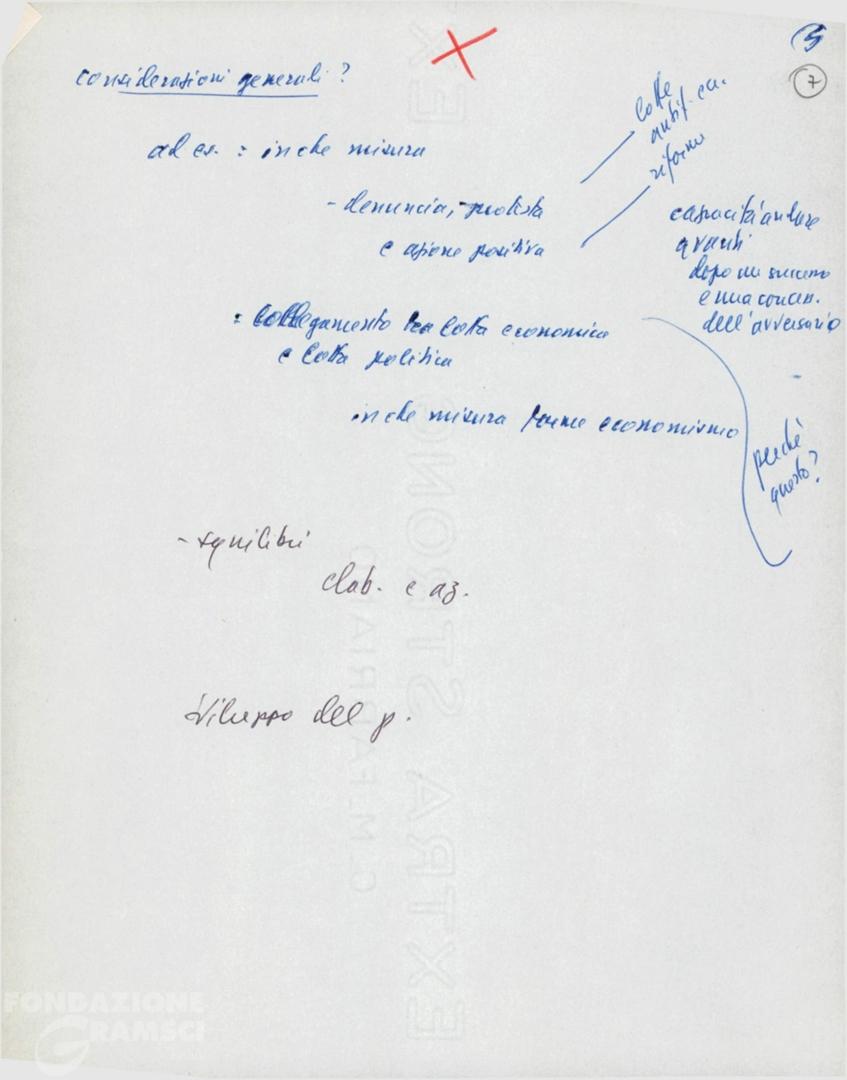 5
7
considerazioni generali ?
ad es. : in che misura
- denuncia, protesta
e azione positiva
lotte
antif. ecc.
riforme
capacità andare
avanti
dopo un successo
e una conces.
dell'avversario
: collegamento tra lotta economica
e lotta politica
in che misura forme economismo
perché
questo?
- squilibri
elab. e az.
sviluppo del p.
EXTRA STRONG
C. M. FABRIANO
FONDAZIONE
GRAMSCI